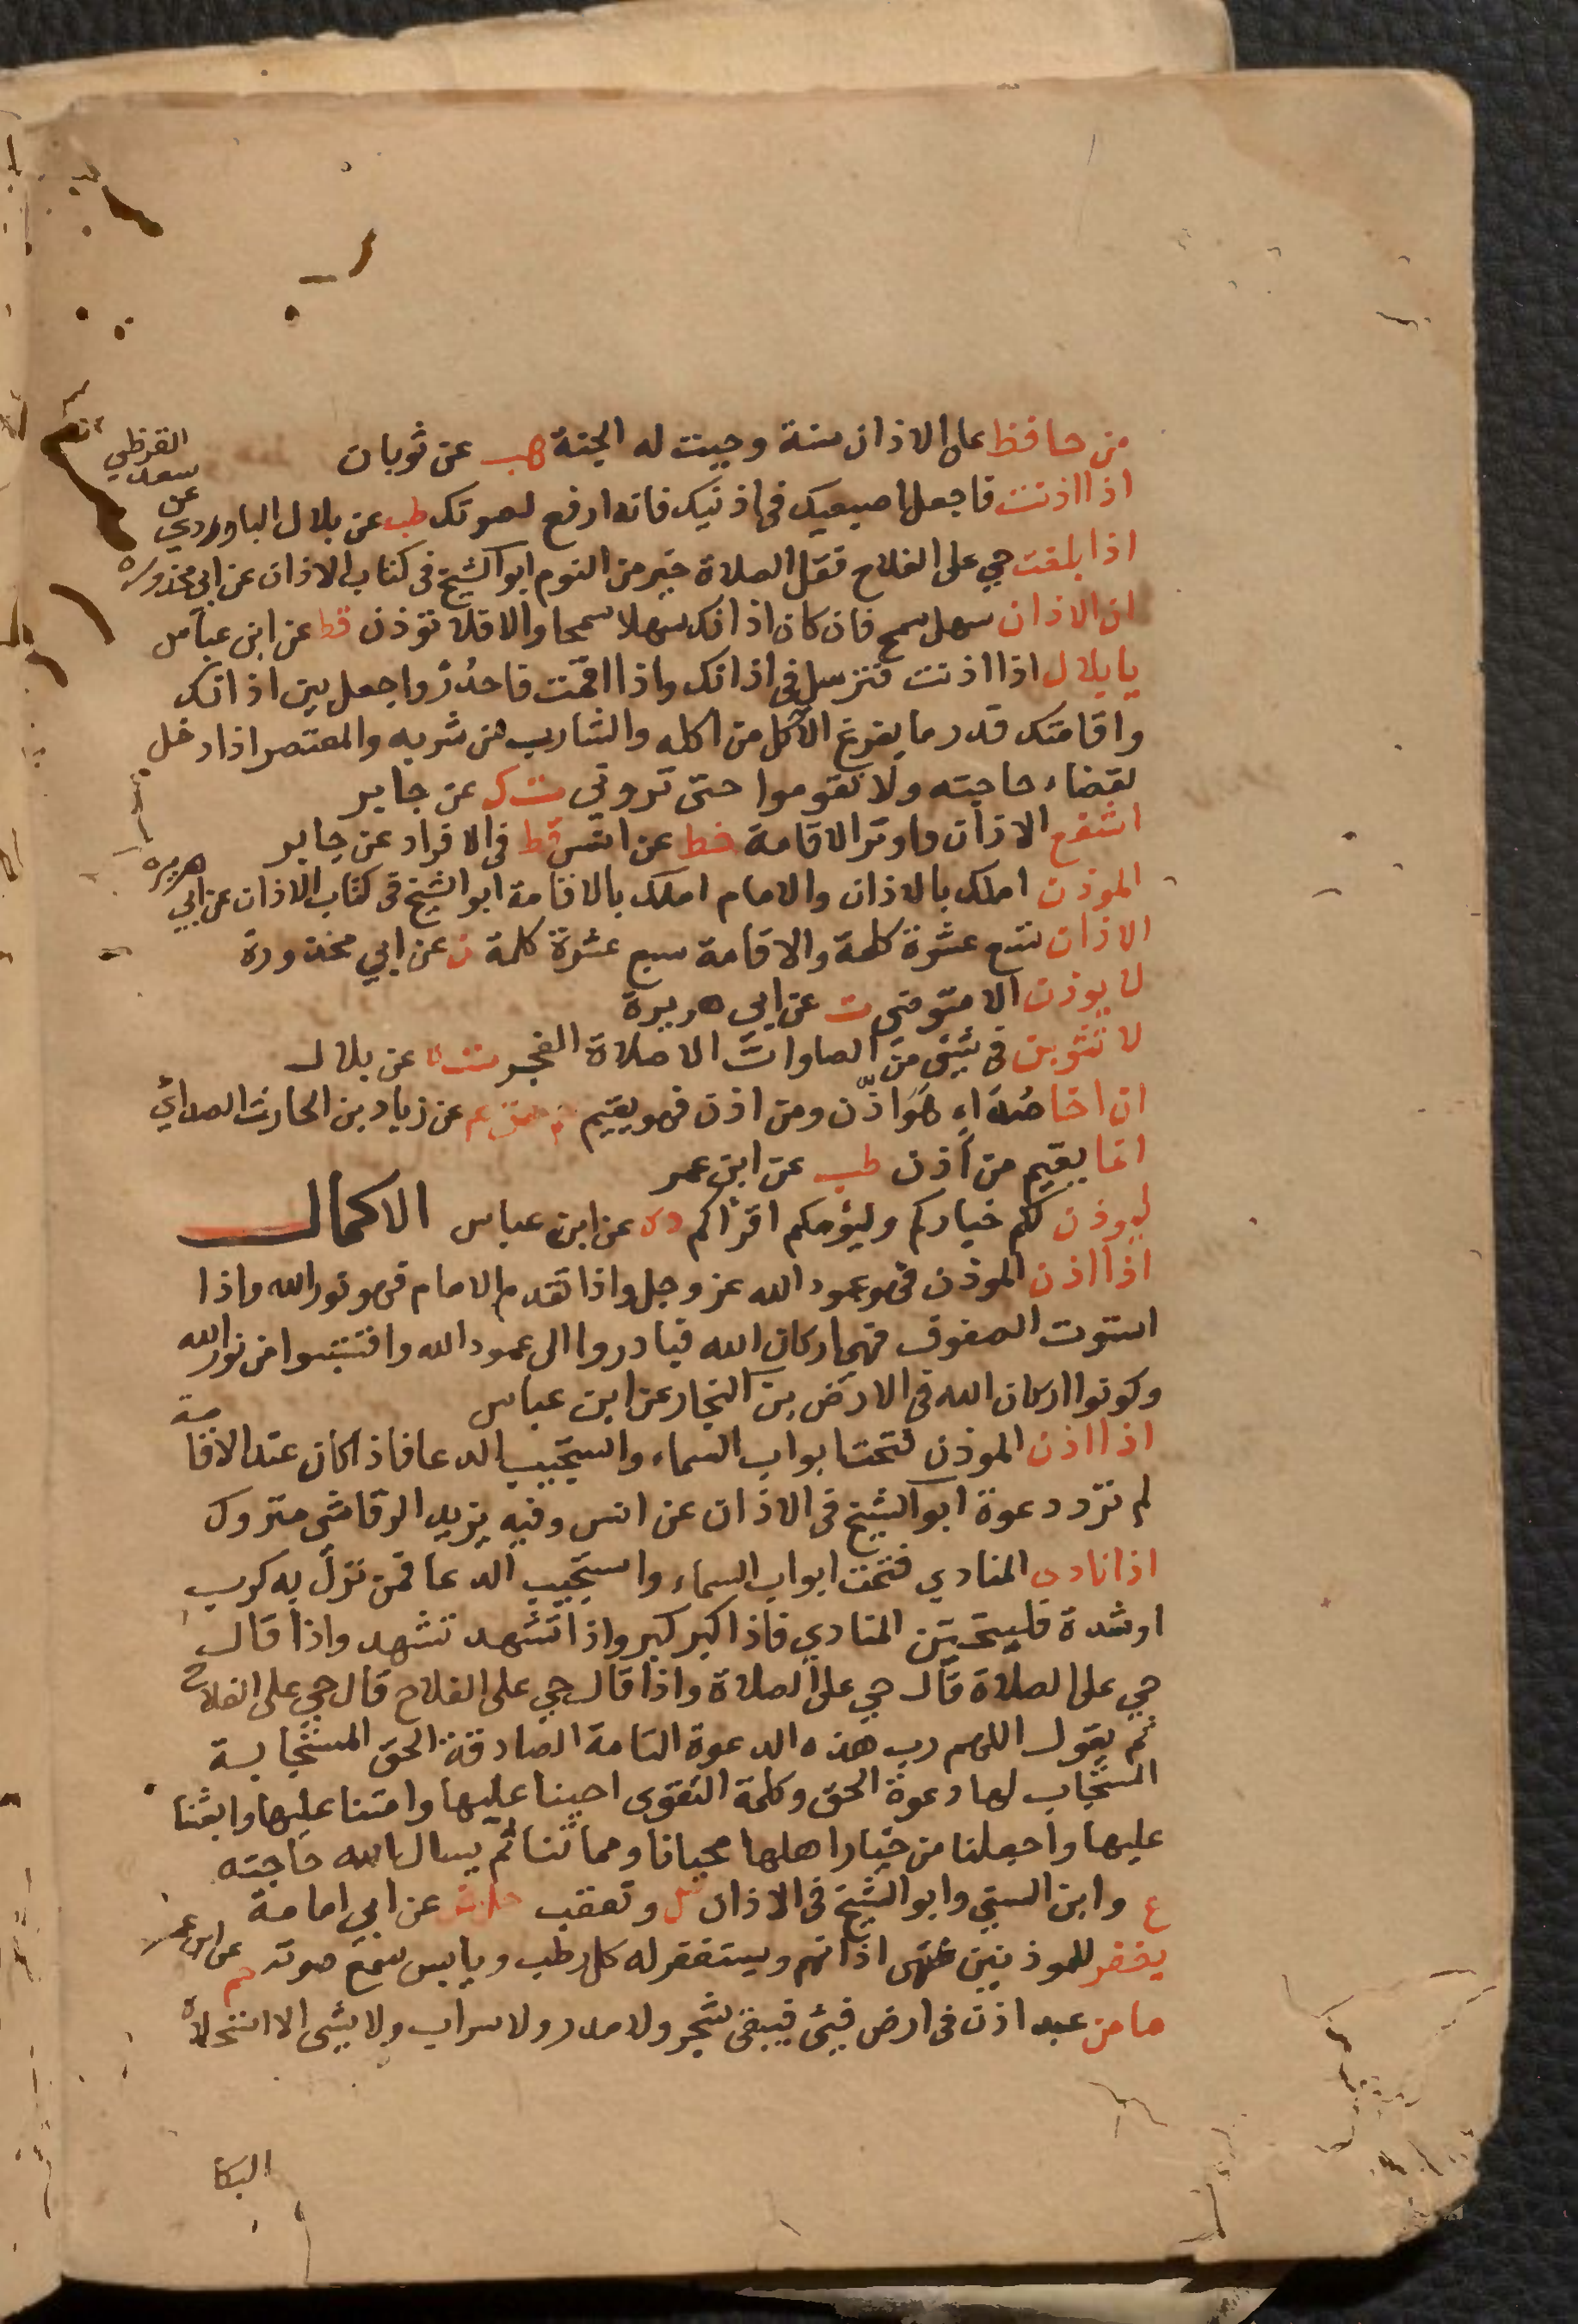 من حافظ على الاذان سنة وجبت له الجنة هب عن ثوبان
اذا اذنت فاجعل اصبعيك في اذنيك فانه ارفع لصوتك طب عن بلال الباوردي عن سعد القرظي
اذا بلغت حي على الفلاح فقل الصلاة خير من النوم ابو الشيخ في كتاب الاذان عن ابي محذوره
ان الاذان سهل سمح فان كان اذانك سهلا سمحا والا فلا توذن قط عن ابن عباس
يا بلال اذا اذنت فترسل في اذانك واذا اقمت فاحدُر واجعل بين اذانك
واقامتك قدر ما يفرغ الاكل من اكله والشارب من شربه والمعتصر اذا دخل
لقضاء حاجته ولا تقوموا حتى تروني ت ك عن جابر
اشفع الاذان واوتر الاقامة خط عن انس قط في الافراد عن جابر
الموذن املك بالاذان والامام املك بالاقامة ابو الشيخ في كتاب الاذان عن ابي هريره
الاذان تسع عشرة كلمة والاقامة سبع عشرة كلمة ن عن ابي محذورة
لا يوذن الا متوضي ت عن ابي هريرة
لا تثوبن في شيئ من الصلوات الا صلاة الفجر ت ه عن بلال
ان اخا صُدَاءٍ هُوَ اذّن ومن اذن فهو يقيم عن زياد بن الحارث الصدائي
انما يقيم من أذن طب عن ابن عمر
ليوذن لكم خياركم وليؤمكم اقرأكم د ه عن ابن عباس الاكمال
اذا اذن الموذن فهو عمود الله عز وجل واذا تقدم الامام فهو نور الله واذا
استوت الصفوف فهي اركان الله فبادروا الى عمود الله واقتبسوا من نور الله
وكونوا اركان الله في الارض بن النجار عن ابن عباس
اذا اذن الموذن فتحت ابواب السماء واستجيب الدعا فاذا كان عند الاقامة
لم ترد دعوة ابو الشيخ في الاذان عن انس وفيه يزيد الرقاشي متروك
اذا نادى المنادي فتحت ابواب السماء واستجيب الدعا فمن نزل به كرب
او شدة فليتحين المنادي فاذا كبر كبر واذا تشهد تشهد واذا قال
حي على الصلاة قال حي على الصلاة واذا قال حي على الفلاح قال حي على الفلاح
ثم يقول اللهم رب هذه الدعوة التامة الصادقة الحق المستجابة
المستجاب لها دعوة الحق وكلمة التقوى احينا عليها وامتنا عليها وابعثنا
عليها واجعلنا من خيار اهلها محيانا ومماتنا ثم يسال الله حاجته
ع وابن السني وابو الشيخ في الاذان ك وتعقب حل ض عن ابي امامة
يغفر للموذنين منتهى اذانهم ويستغفر له كل رطب ويابس سمع صوته حم عن ابن عمر
ما من عبد اذن في ارض فيبقى شجر ولا مدر ولا تراب ولا شيى الا استحلاه
البكا